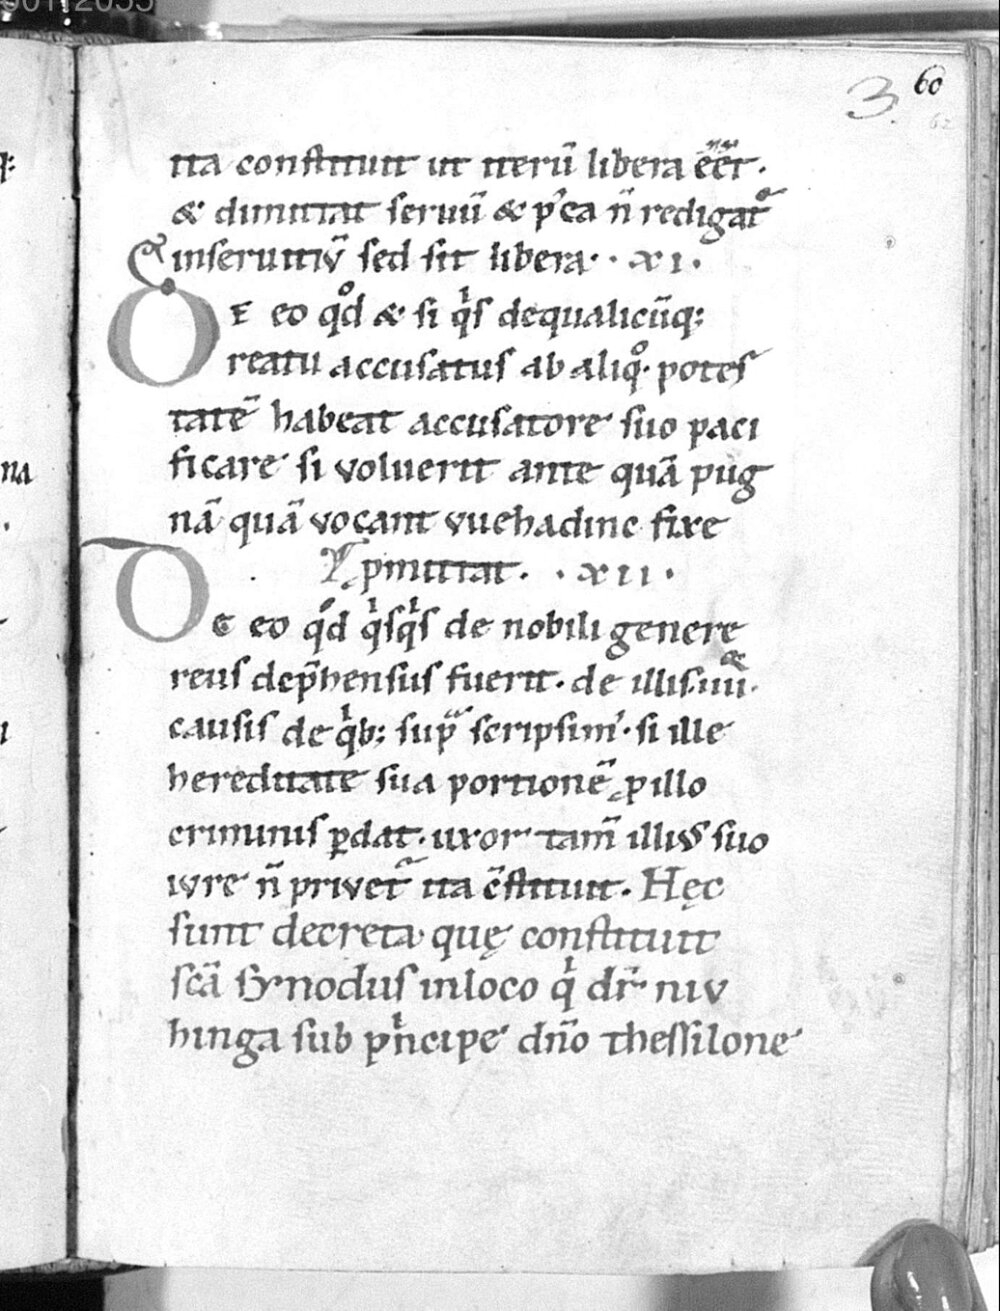 60
3
ita constituit ut iterũ libera ẽẽt.
& dimittat seruũ & p'ea ñ redigat᷑
inseruitiṽ sed sit libera. · XI.
De eo qͦd & si qⁱs dequalicũq;
reatu accusatus ab aliqͦ. potes
tatẽ habeat accusatore suo paci
ficare si voluerit ante quã pug
nã quã vocant vuehadinc fixe
pmittat. · XII ·
De eo qͦd qⁱsqⁱs de nobili genere
reus dep̃hensus fuerit. de illis. iiii.
causis de qⁱb; supᵃ scripsim'. si ille
hereditate sua portionẽ p illo
criminis ꝑdat. uxor tam̃ illius suo
iure ñ privet᷑ ita c̃stituit. Hęc
sunt decreta quę constituit
sc̃a Synodus inloco qⁱ dr̃ niv
hinga sub pⁱncipe dño thessilone